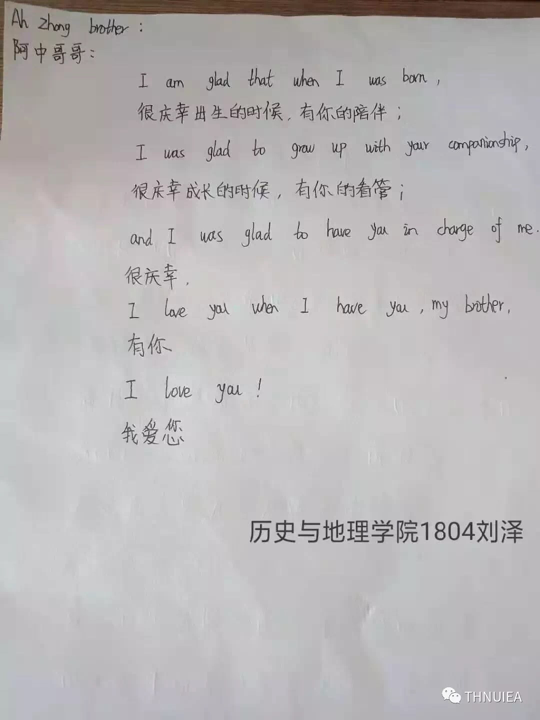 Ah Zhong brother :
阿中哥哥：
I am glad that when I was born,
很庆幸出生的时候，有你的陪伴；
I was glad to grow up with your companionship,
很庆幸成长的时候，有你的看管；
and I was glad to have you in charge of me.
很庆幸，
I love you when I have you, my brother,
有你、
I love you!
我爱您
历史与地理学院1804刘泽
THNUIEA